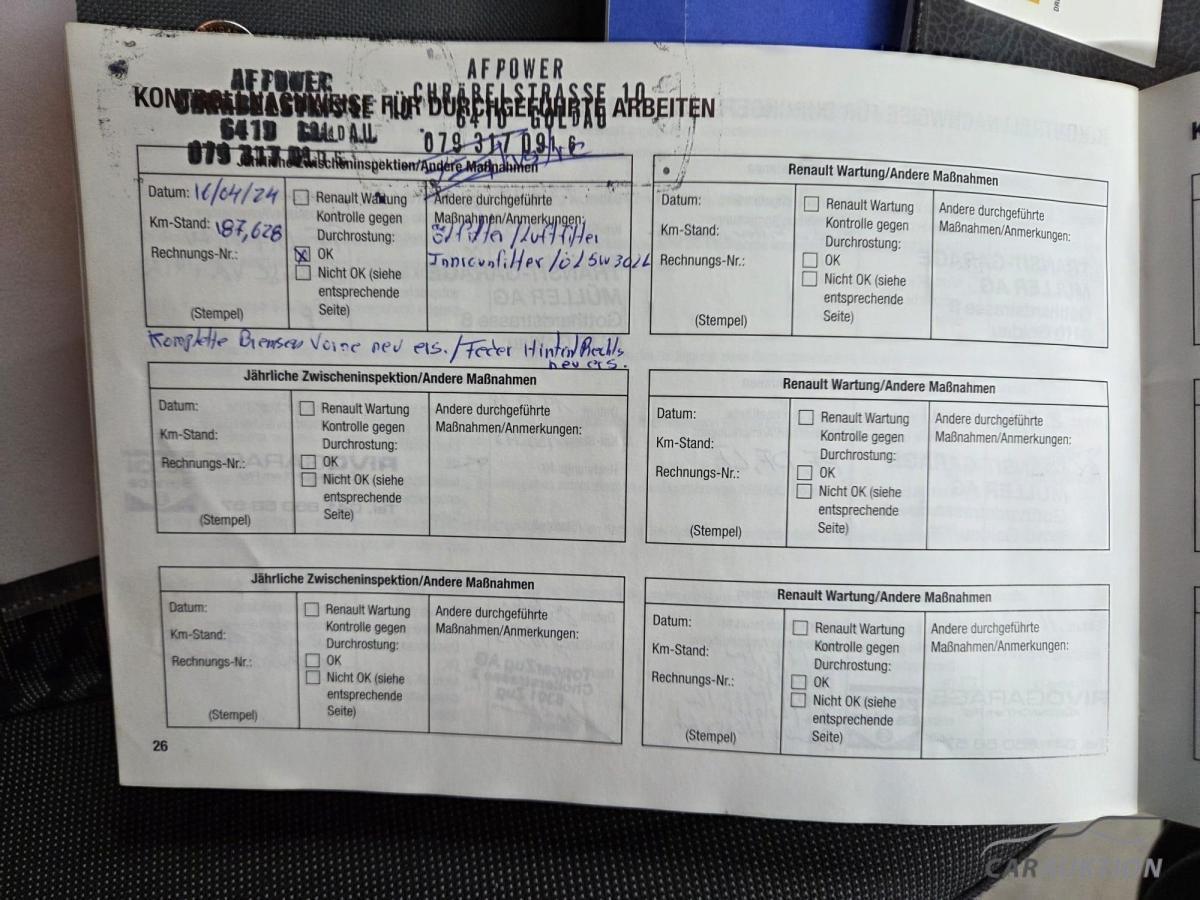 AFPOWER
CHRÄBELSTRASSE 10
6410 GOLDAU
079 317 09 16
AFPOWER
6410 GOLDAU
079 317 09
KONTROLLNACHWEISE FÜR DURCHGEFÜHRTE ARBEITEN
Jährliche Zwischeninspektion/Andere Maßnahmen
Datum: 16/04/24
Km-Stand: 187,628
Rechnungs-Nr.:
(Stempel)
Renault Wartung
Kontrolle gegen
Durchrostung:
OK
Nicht OK (siehe
entsprechende
Seite)
Andere durchgeführte
Maßnahmen/Anmerkungen:
Ölfilter/Luftfilter
Innenraumfilter/Öl 5W30 2L
Komplette Bremsen Vorne neu ers./Feder Hinten Rechts
neu ers.
Renault Wartung/Andere Maßnahmen
Datum:
Km-Stand:
Rechnungs-Nr.:
(Stempel)
Renault Wartung
Kontrolle gegen
Durchrostung:
OK
Nicht OK (siehe
entsprechende
Seite)
Andere durchgeführte
Maßnahmen/Anmerkungen:
Jährliche Zwischeninspektion/Andere Maßnahmen
Datum:
Km-Stand:
Rechnungs-Nr.:
(Stempel)
Renault Wartung
Kontrolle gegen
Durchrostung:
OK
Nicht OK (siehe
entsprechende
Seite)
Andere durchgeführte
Maßnahmen/Anmerkungen:
Renault Wartung/Andere Maßnahmen
Datum:
Km-Stand:
Rechnungs-Nr.:
(Stempel)
Renault Wartung
Kontrolle gegen
Durchrostung:
OK
Nicht OK (siehe
entsprechende
Seite)
Andere durchgeführte
Maßnahmen/Anmerkungen:
Jährliche Zwischeninspektion/Andere Maßnahmen
Datum:
Km-Stand:
Rechnungs-Nr.:
(Stempel)
Renault Wartung
Kontrolle gegen
Durchrostung:
OK
Nicht OK (siehe
entsprechende
Seite)
Andere durchgeführte
Maßnahmen/Anmerkungen:
Renault Wartung/Andere Maßnahmen
Datum:
Km-Stand:
Rechnungs-Nr.:
(Stempel)
Renault Wartung
Kontrolle gegen
Durchrostung:
OK
Nicht OK (siehe
entsprechende
Seite)
Andere durchgeführte
Maßnahmen/Anmerkungen:
26
CARAUKTION